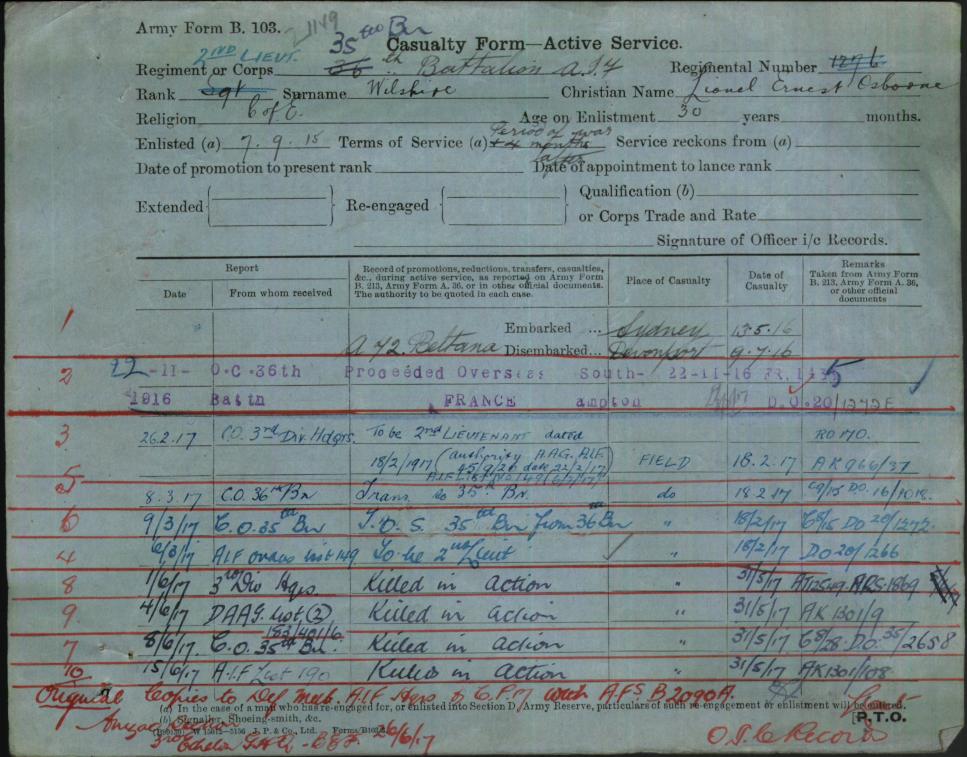 Army Form B. 103.
35th Bn
Casualty Form—Active Service.
2ND LIEUT.
Regiment or Corps 36th Battalion A.I.F Regimental Number 1296
Rank Sgt Surname Wilshire Christian Name Lionel Ernest Osborne
Religion C of E. Age on Enlistment 30 years months.
Enlisted (a) 7.9.15 Terms of Service (a) Period of war + 4 months after Service reckons from (a)
Date of promotion to present rank Date of appointment to lance rank
Extended Re-engaged Qualification (b)
or Corps Trade and Rate
Signature of Officer i/c Records.
Report
Date From whom received
Record of promotions, reductions, transfers, casualties, &c., during active service, as reported on Army Form B. 213, Army Form A. 36, or in other official documents. The authority to be quoted in each case.
Place of Casualty
Date of Casualty
Remarks
Taken from Army Form B. 213, Army Form A. 36, or other official documents
1 Embarked ... Sydney 13.5.16
A 72. Beltana Disembarked... Devonport 9.7.16
2 22 -11- O.C.36th Proceeded Overseas South- 22-11-16
1916 Battn FRANCE ampton D.O.20/1272E
3 26.2.17 C.O. 3rd Div. Hdqrs. To be 2nd LIEUTENANT dated ROMO.
18/2/1917 (authority A.A.G. AIF FIELD 18.2.17 AK 966/37
45/9/26 date 22/2/17)
A.I.F. List No 149 (6/3/17)
5 8.3.17 C.O. 36th Bn Trans to 35th Bn. do 18.2.17 C9/15 D.O. 16/1018.
6 9/3/17 C.O. 35th Bn T.O.S. 35th Bn from 36 Bn " 18/2/17 C8/15 DO 20/1272
4 6/3/17 AIF orders list 149 To be 2nd Lieut " 18/2/17 DO 20/1266
8 1/6/17 3rd Div Hqrs Killed in action " 31/5/17 A.R.S. 1869
9 4/6/17 DAAG. List (2) Killed in action " 31/5/17 AK 1301/9
183/401/6
7 8/6/17 C.O. 35th Bn. Killed in action " 31/5/17 C8/28. DO. 35/2658
10 15/6/17 A.I.F List 190 Killed in action " 31/5/17 AK1301/108
Original Copies to Def Melb. A.I.F. Hqrs & C.P.M with A.F's B2090A.
(a) In the case of a man who has re-engaged for, or enlisted into Section D, Army Reserve, particulars of such re-engagement or enlistment will be entered.
(b) Signaller, Shoeing-smith, &c.
J. P. & Co., Ltd.
[P.T.O.
Anzac Section
3rd Echelon G.H.Q - B.E.F. 20/6/17
Records